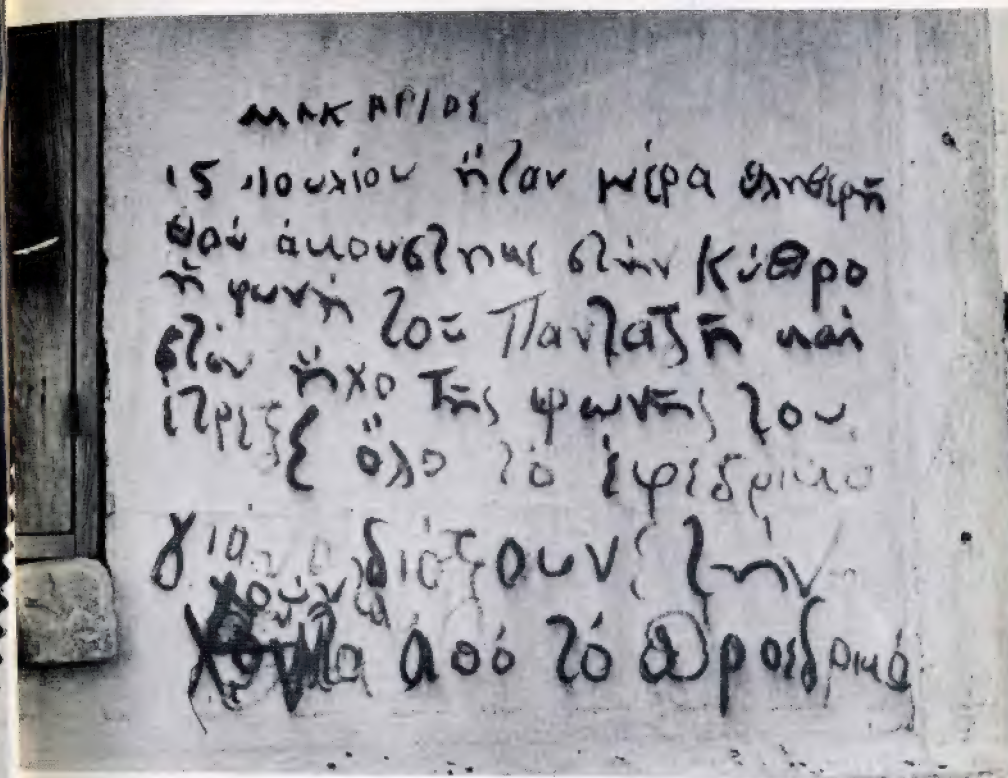 ΜΑΚΑΡΙΟΣ
15 Ιουλίου ἦταν μέρα θλιθερῆ
ποὺ ἀκούστηκε στὴν Κύπρο
ἡ φωνὴ τοῦ Πανταζῆ καὶ
στὸν ἦχο τῆς φωνῆς του
ἔτρεξε ὅλο τὸ ἐφεδρικό
γιὰ νὰ διόξουν τὴν
χούντα ἀπὸ τὸ προεδρικό